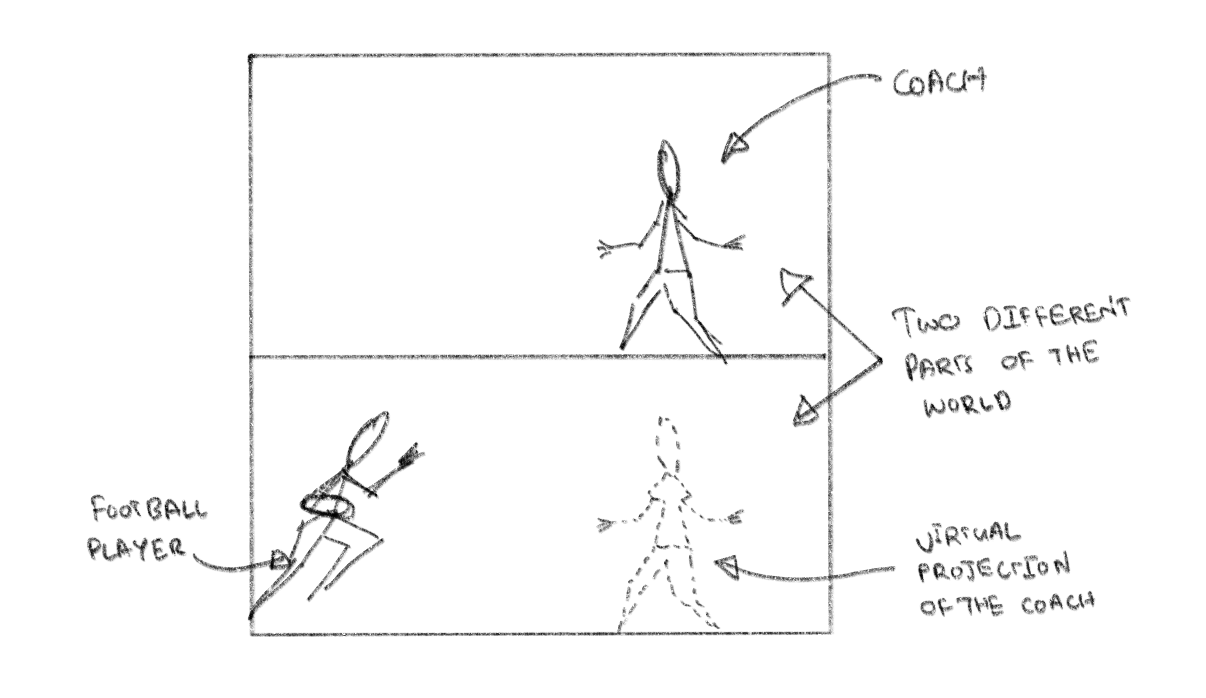 COACH
TWO DIFFERENT
PARTS OF THE
WORLD
FOOTBALL
PLAYER
VIRTUAL
PROJECTION
OF THE COACH